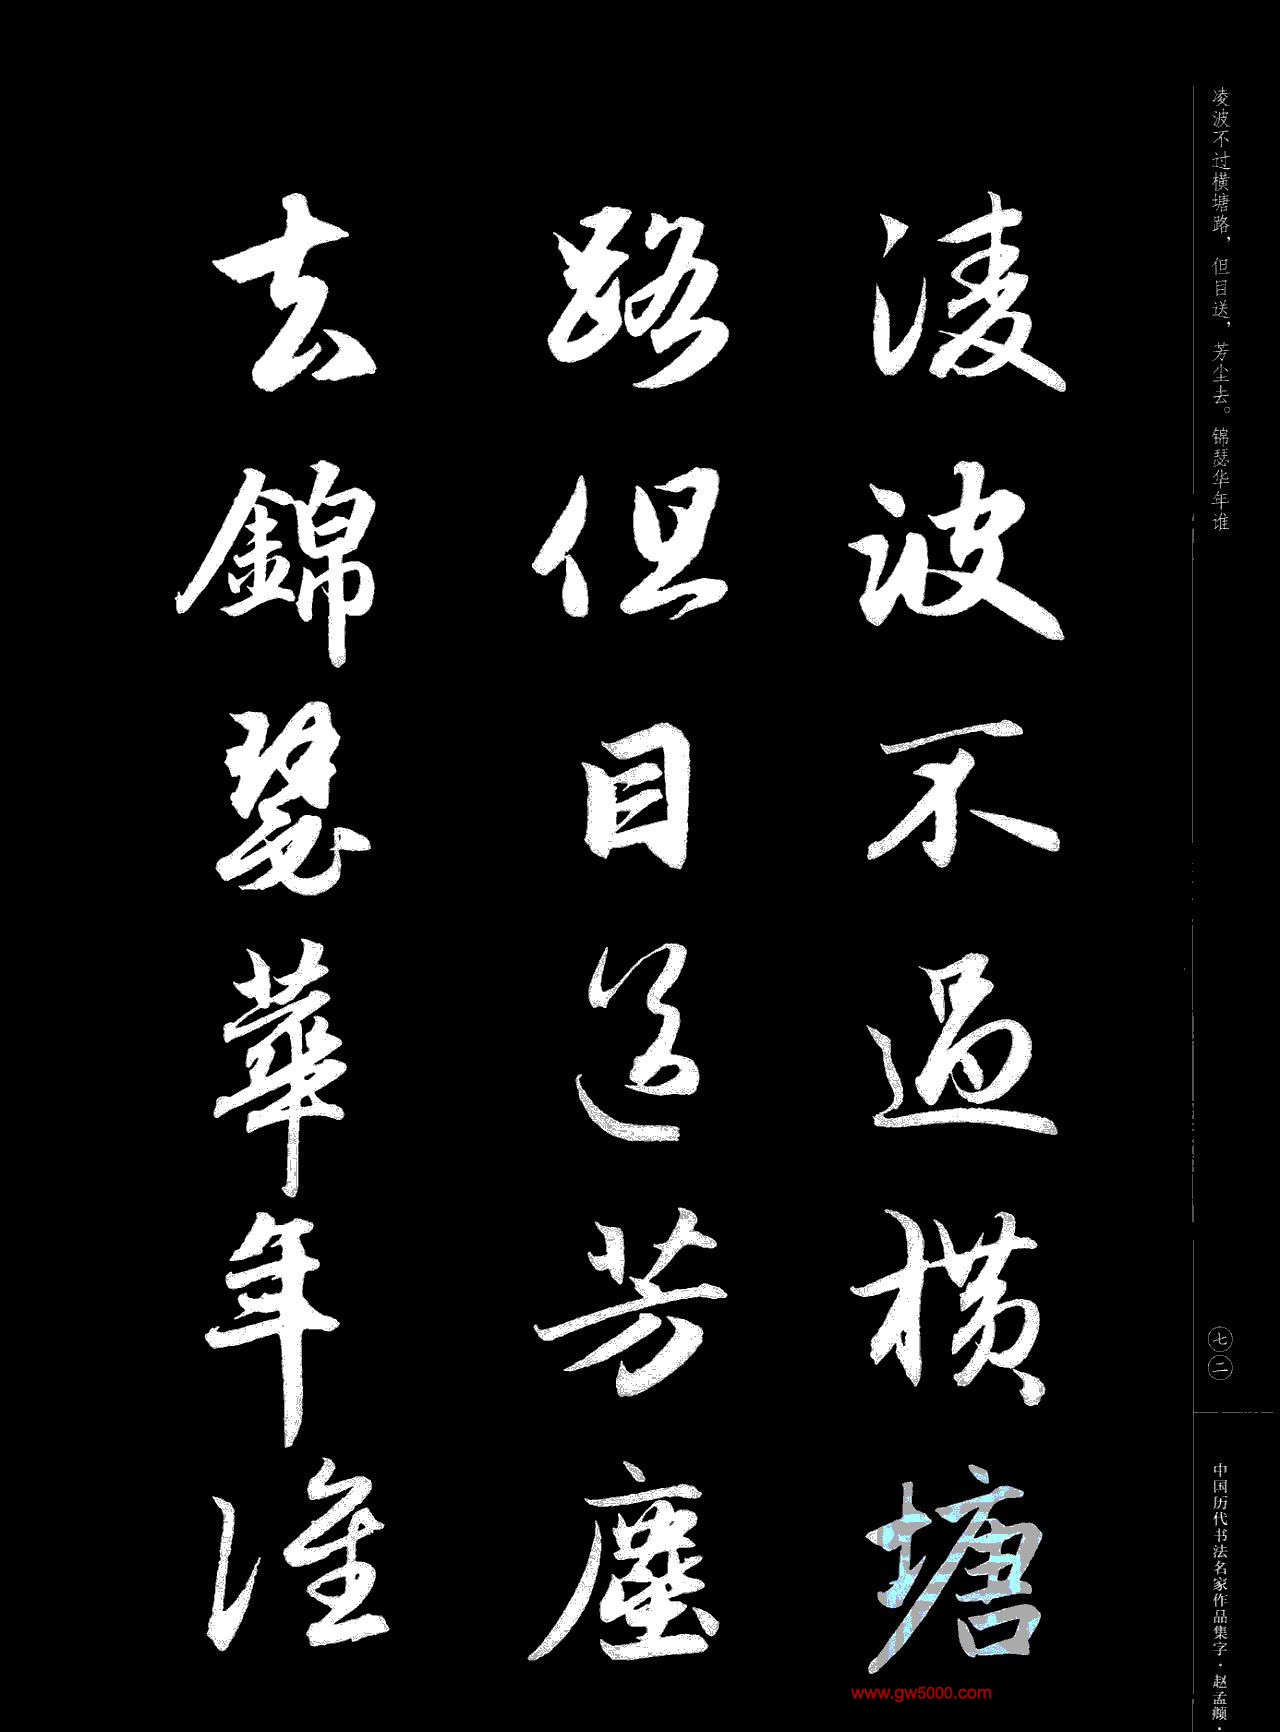 凌波不過橫塘
路但目送芳塵
去錦瑟華年誰
凌波不过横塘路，但目送，芳尘去。锦瑟华年谁
七二
中国历代书法名家作品集字·赵孟頫·
www.gw5000.com